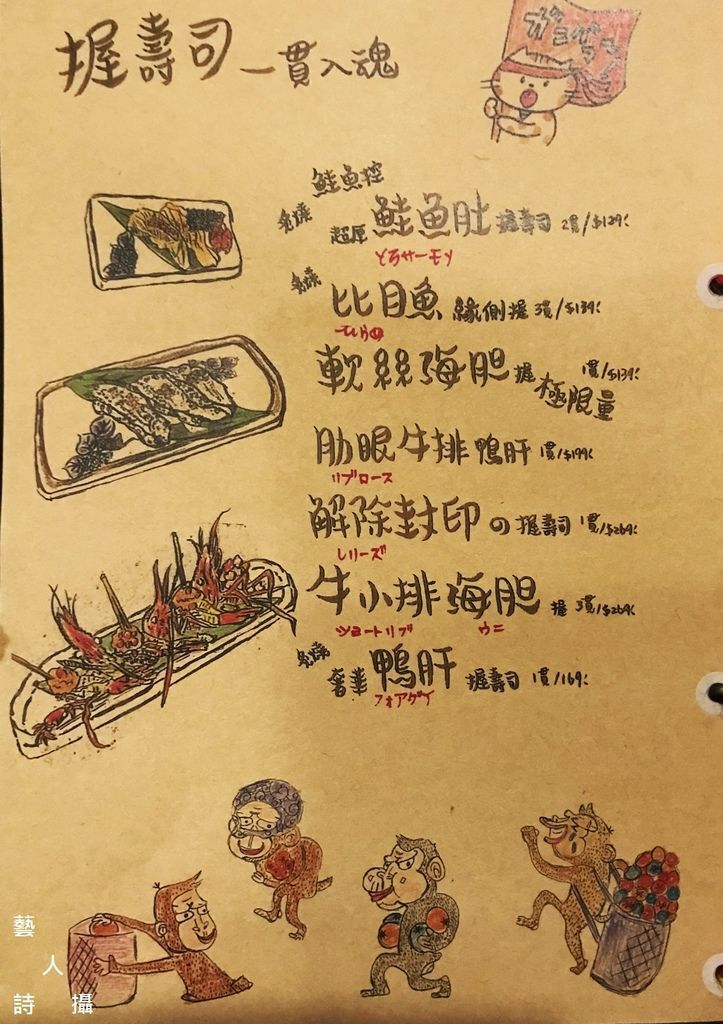 握壽司 一貫入魂
鮭魚控
炙燒 超厚 鮭魚肚 握壽司 2貫/$139
とろサーモン
炙燒 比目魚 緣側握 3貫/$139
ひらめ
軟絲海胆握 1貫/$139
極限量
肋眼牛排鴨肝 1貫/$199
リブロース
解除封印の握壽司 1貫/$269
しリーズ
牛小排海胆 握 3貫/$269
ショートリブ ウニ
炙燒 奢華 鴨肝 握壽司 1貫/169
フォアグイ
藝
人
詩 攝